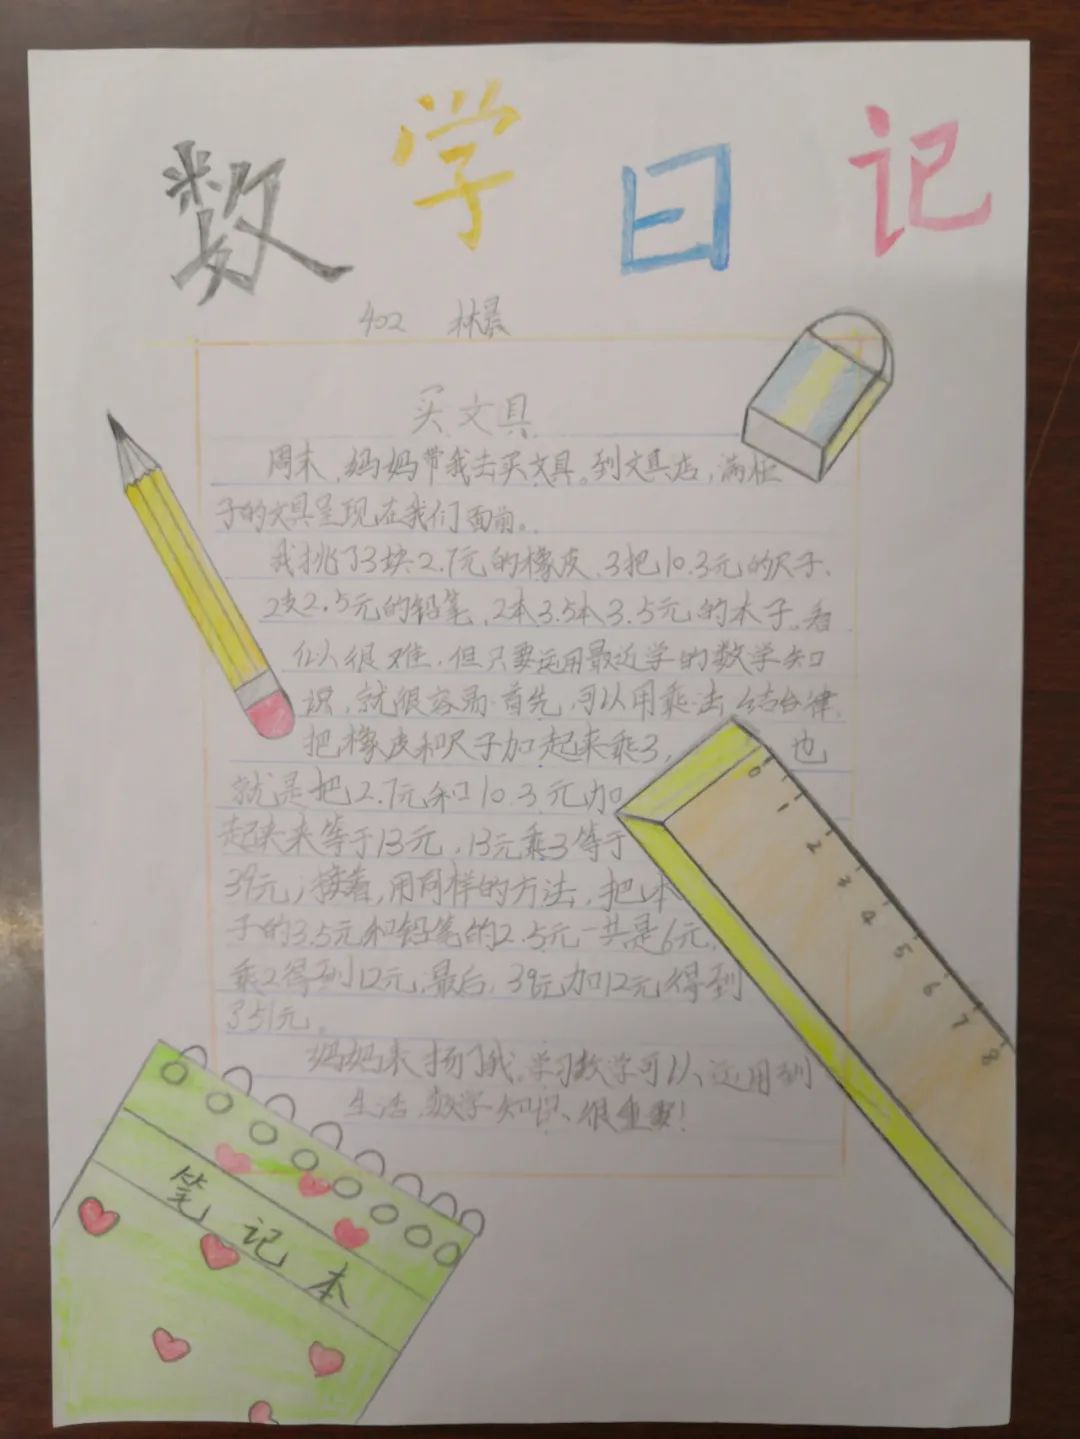 数学日记
402 林晨
买文具
周末,妈妈带我去买文具。到文具店,满柜
子的文具呈现在我们面前。
我挑了3块2.7元的橡皮、3把10.3元的尺子、
2支2.5元的铅笔、2本3.5本3.5元的本子。看
似很难,但只要运用最近学的数学知
识,就很容易。首先,可以用乘法结合律,
把橡皮和尺子加起来乘3,也
就是把2.7元和10.3元加
起来来等于13元,13元乘3等于
39元;接着,用同样的方法,把本
子的3.5元和铅笔的2.5元一共是6元,
乘2得到12元,最后,39元加12元得到
351元。
妈妈表扬了我。学习数学可以运用到
生活,数学知识很重要!
0 1 2 3 4 5 6 7 8
笔记本